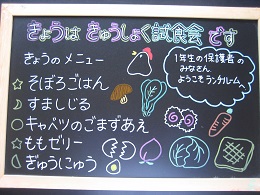 きょうは きゅうしょく試食会 です
きょうのメニュー
☆そぼろごはん
すましじる
○キャベツのごまずあえ
★ももゼリー
ぎゅうにゅう
1年生の保護者の
みなさん
ようこそランチルームへ